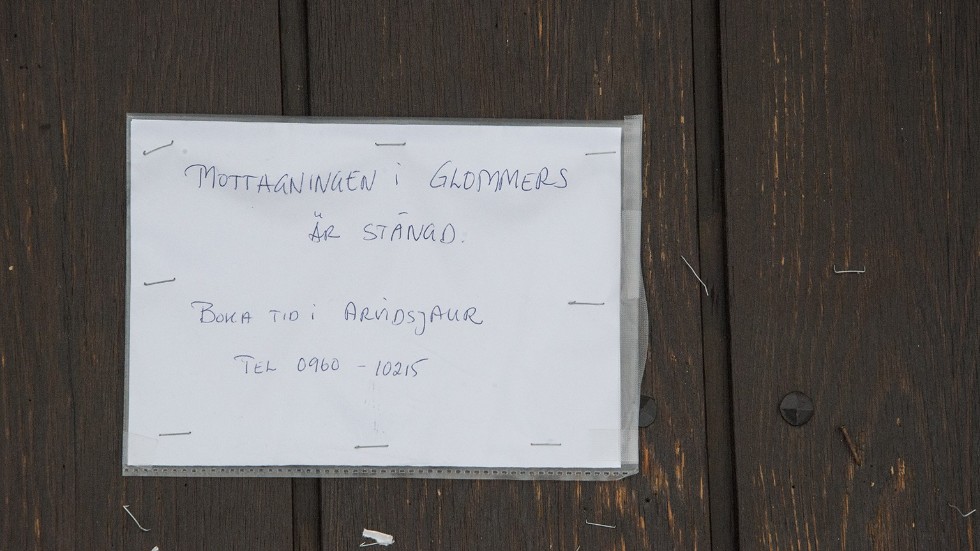 MOTTAGNINGEN i GLOMMERS
ÄR STÄNGD.
BOKA TID i ARVIDSJAUR
TEL 0960 - 10215